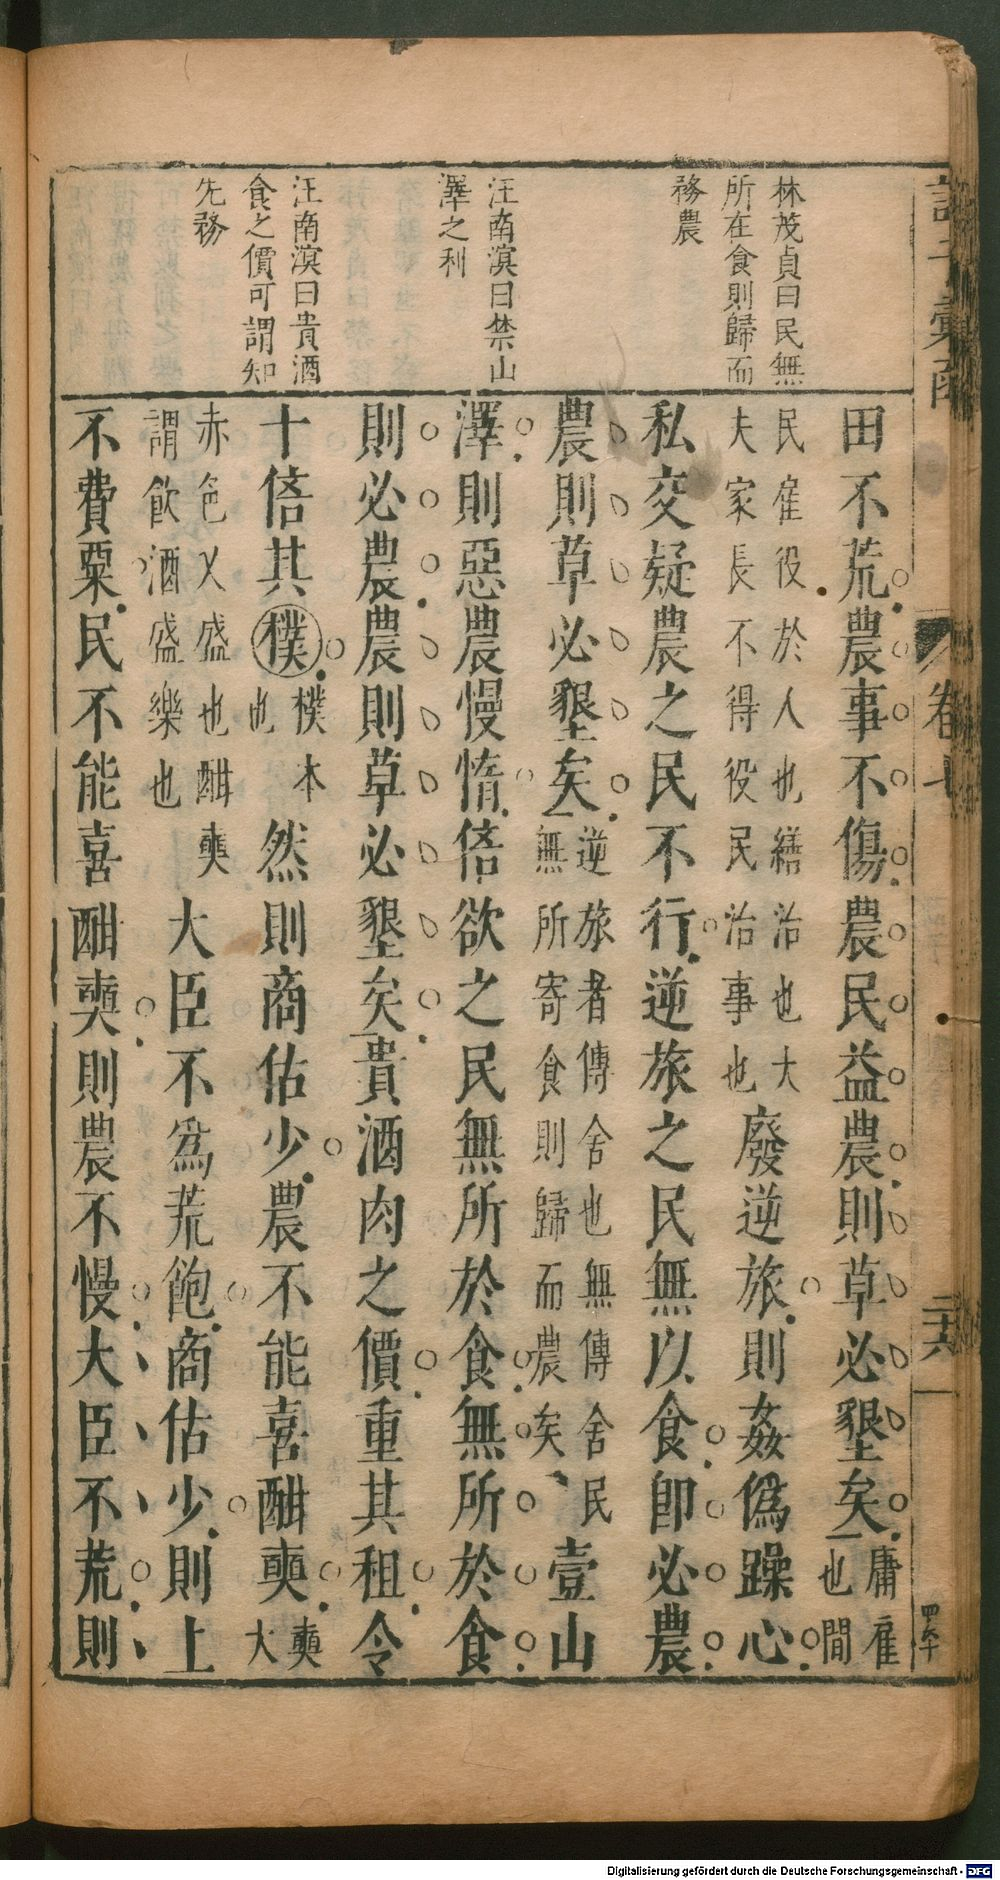 林茂貞曰民無
所在食則歸而
務農
汪南溟曰禁山
澤之利
汪南溟曰貴酒
食之價可謂知
先務
田不荒農事不傷農民益農則草必墾矣庸雇
也間
民雇役於人也繕治也大
夫家長不得役民治事也廢逆旅則姦偽躁心
私交疑農之民不行逆旅之民無以食即必農
農則草必墾矣逆旅者傳舍也無傳舍民
無所寄食則歸而農矣壹山
澤則惡農慢惰倍欲之民無所於食無所於食
則必農農則草必墾矣貴酒肉之價重其租令
十倍其樸樸本
也然則商估少農不能喜酣奭奭
大
赤色又盛也酣奭
謂飲酒盛樂也大臣不為荒飽商估少則上
不費粟民不能喜酣奭則農不慢大臣不荒則
卷七
二十六
Digitalisierung gefördert durch die Deutsche Forschungsgemeinschaft - DFG